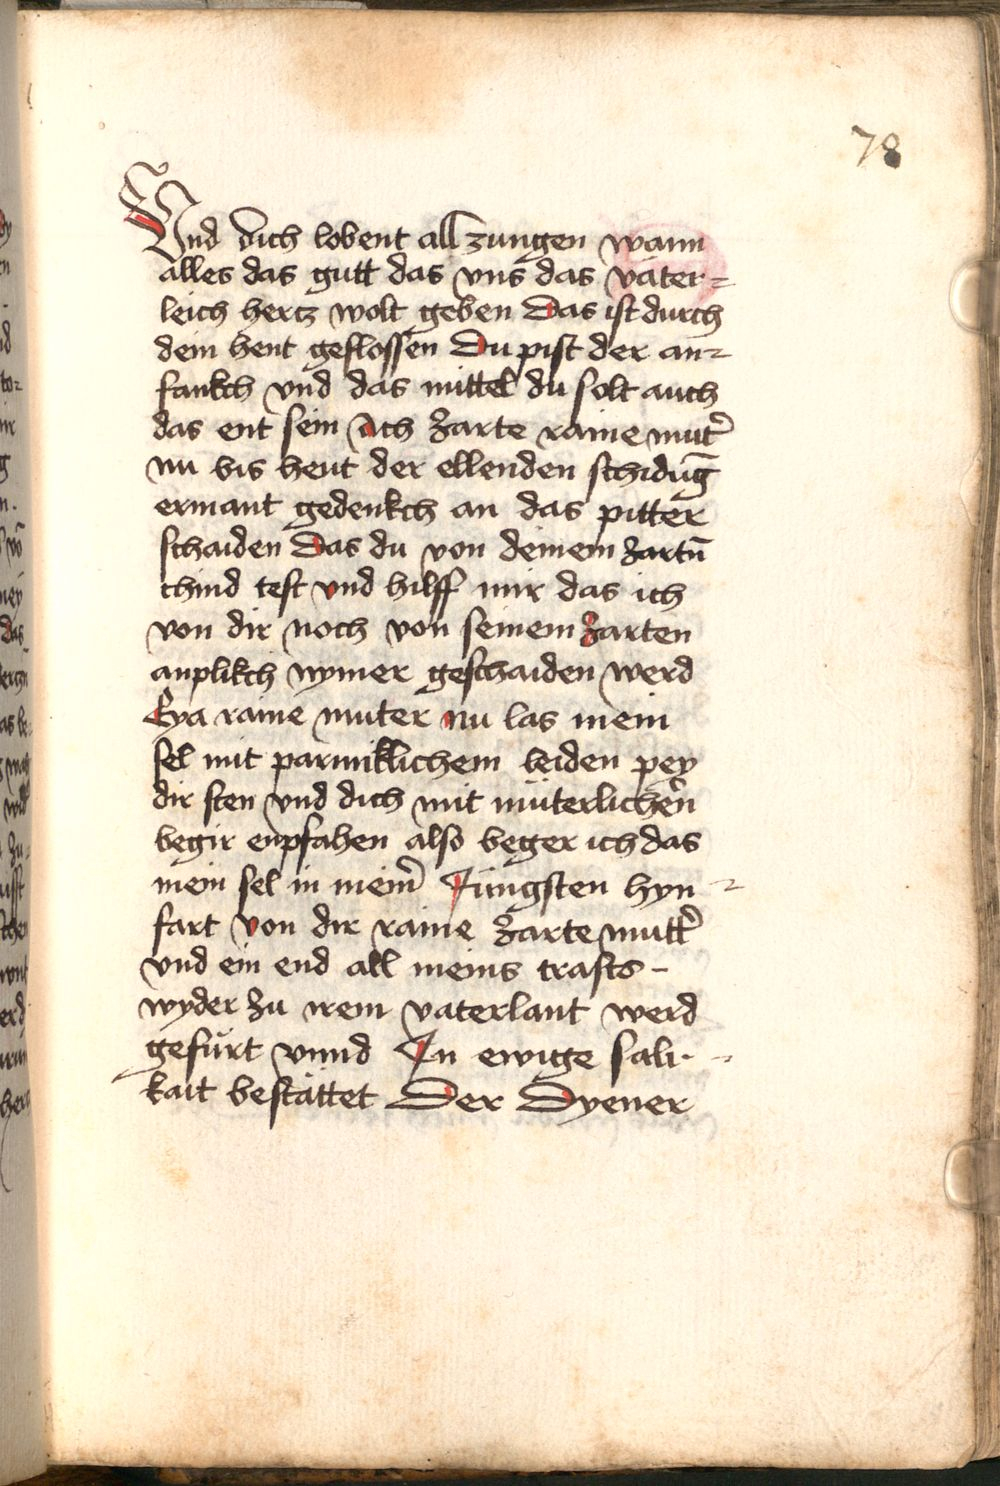 78
Und dich lobent all zungen wann
alles das gutt das vns das väter=
leich hertz wolt geben Das ist durch
dein hent geflossen Du pist der an=
fankch vnd das mittel du solt auch
das ent sein Ach zarte raine mut̾
nu bis heut der ellenden schidūg
ermant gedenkch an das pitter
schaiden Das du von deinem zartn̄
chind test vnd hilff mir das ich
von dir noch von seinem zarten
anplikch nymer geschaiden werd
Eya raine muter nu las mein
sel mit parmiklichem leiden pey
dir sten vnd dich mit müterlicher
begir enpfahen also beger ich das
mein sel in meim̾ Jüngsten hyn=
fart von dir raine zarte mutt̾
vnd ein end all meins trasts -
wyder zu irem vaterlant werd
gefürt vnnd In ewige sali=
kait bestättet Der Dyener